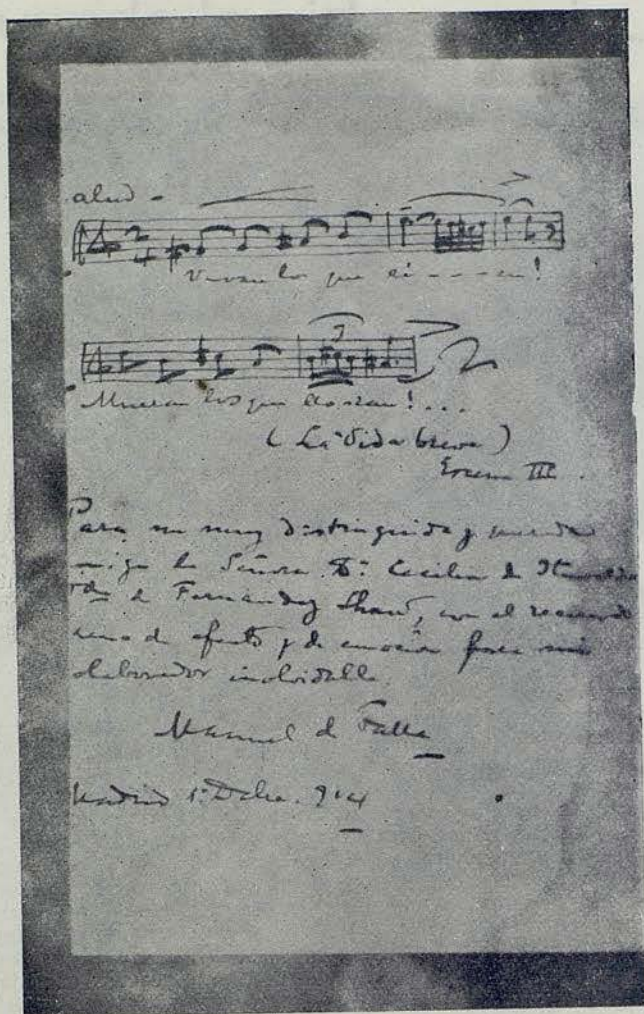 alud -
Vivan los que rí - - - en!
3
Mueran los que lloran!...
(La vida breve)
Escena III.
Para mi muy distinguida y querida
miga la Señora Dª Cecilia de Iturralde
Vda de Fernandez Shaw, con el recuerdo
leno de afecto y de emoción para mi
olaborador inolvidable.
Manuel de Falla
Madrid 1º Dcbre. 914